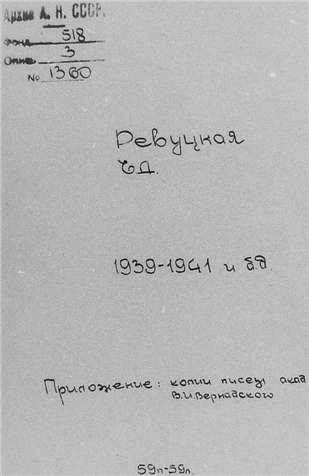 Архив А. Н. СССР.
Фонд 518
Опись 3
No 1360
Ревуцкая
Е.Д.
1939-1941 и б.д.
Приложение: копии писем акад
В.И.Вернадского
59п-59л.